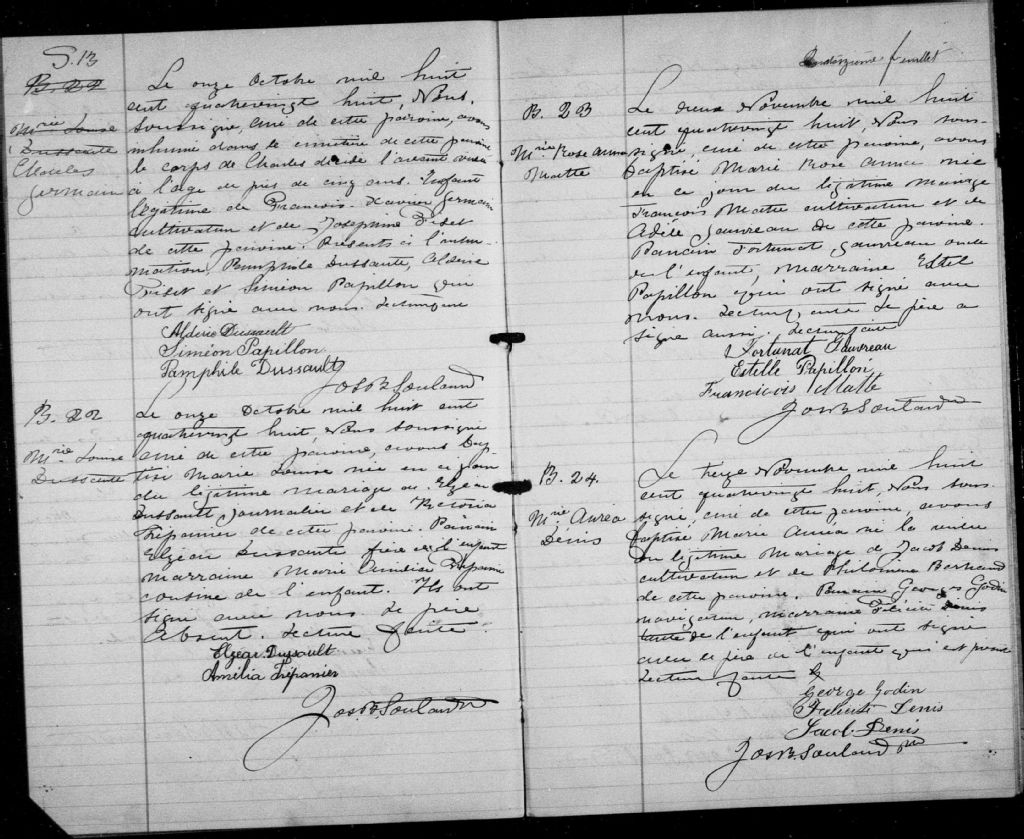 S. 13
B. 22
Mrie Louise
Dussaulte
Charles
Germain
Le onze Octobre mil huit
cent quatrevingt huit, Nous,
soussigné, curé de cette paroisse, avons
inhumé dans le cimetière de cette paroisse
le corps de Charles décédé l'avant veille
à l'age de près de cinq ans. Enfant
légitime de François-Xavier Germain
cultivateur et de Joséphine Piset
de cette paroisse. Présents à l'inhu-
mation Pamphile Dussaulte, Aldéric
Piset et Siméon Papillon qui
ont signé avec nous. Lecture faite
Aldéric Dussault
Siméon Papillon
Pamphile Dussault
Jos B Soulard
B. 22
Mrie Louise
Dussaulte
Le onze Octobre mil huit cent
quatrevingt huit, Nous soussigné
curé de cette paroisse, avons bap-
tisé Marie Louise née en ce jour
du légitime mariage de Elzéar
Dussault journalier et de Victoria
Trépanier de cette paroisse. Parrain
Elzéar Dussaulte frère de l'enfant
marraine Marie Amélia Trépanier
cousine de l'enfant. Ils ont
signé avec nous le père
absent. Lecture faite.
Elzear Dussault
Amélia Trépanier
Jos B Soulard
feuillet
B. 23
Mrie Rose Anna
Matte
Le deux Novembre mil huit
cent quatrevingt huit, Nous sous-
signé, curé de cette paroisse, avons
baptisé Marie Rose Anna née
en ce jour du légitime mariage
François Matte cultivateur et de
Adèle Gauvreau de cette paroisse.
Parrain Fortunat Gauvreau oncle
de l'enfant, marraine Estel
Papillon qui ont signé avec
nous. Le père a
signé aussi. Lecture faite
Fortunat Gauvreau
Estelle Papillon
Francicois Matte
Jos B Soulard
B. 24.
Mrie Aurea
Denis
Le treize Novembre mil huit
cent quatrevingt huit, Nous sous-
signé, curé de cette paroisse, avons
baptisé Marie Auréa né la veille
du légitime mariage de Jacob Denis
cultivateur et de Philomène Bertrand
de cette paroisse. Parrain Georges Godin
navigateur, marraine Félicité Denis
tante de l'enfant qui ont signé
avec le père de l'enfant qui est présent
Lecture faite
George Godin
Denis
Jacob Denis
Jos B. Soulard Ptre